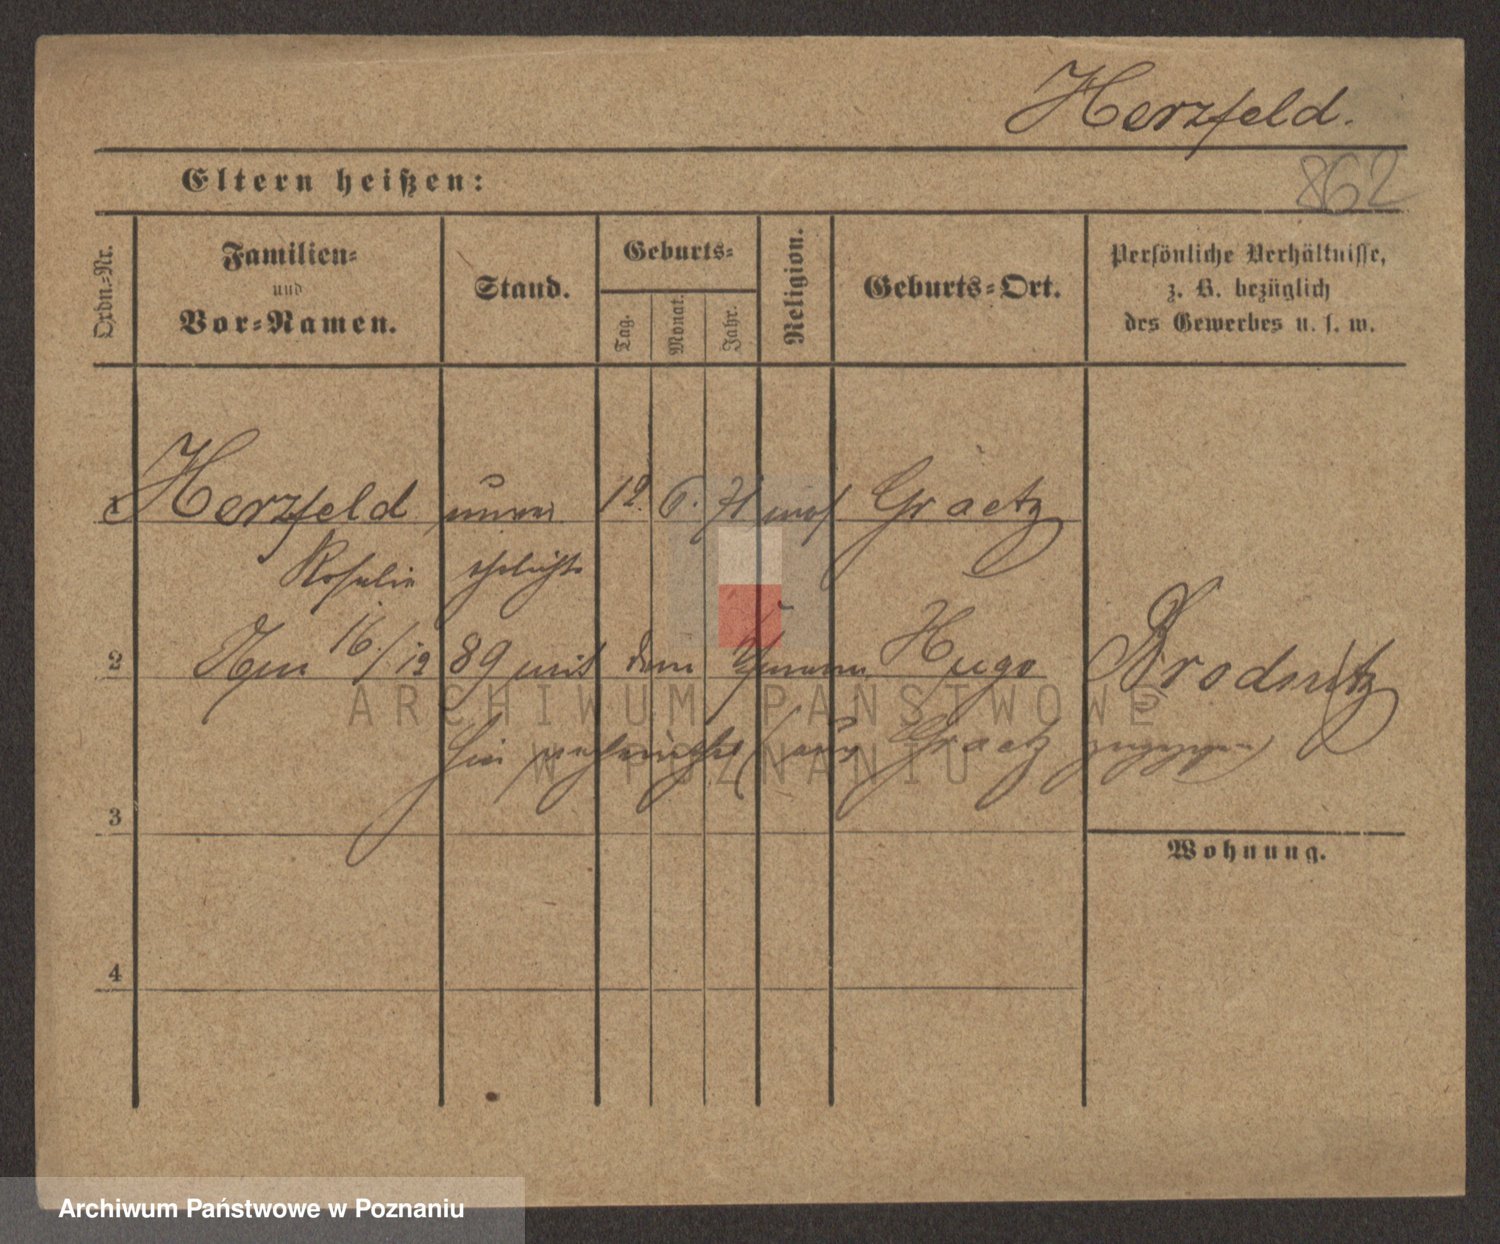 Herzfeld.
862
Eltern heißen:
Ordn.-Nr.
Familien-
und
Vor-Namen.
Stand.
Geburts-
Tag.
Monat.
Jahr.
Religion.
Geburts-Ort.
Persönliche Verhältnisse,
z. B. bezüglich
des Gewerbes u. s. w.
1 Herzfeld unver 12. 6. 71 mos Graetz
Rosalie ehelicht
2 Am 16./12 89 mit dem Hugo Brodnitz
hier verheirathet (aus Graetz zugezogen)
3
Wohnung.
4
ARCHIWUM PAŃSTWOWE
W POZNANIU
Archiwum Państwowe w Poznaniu